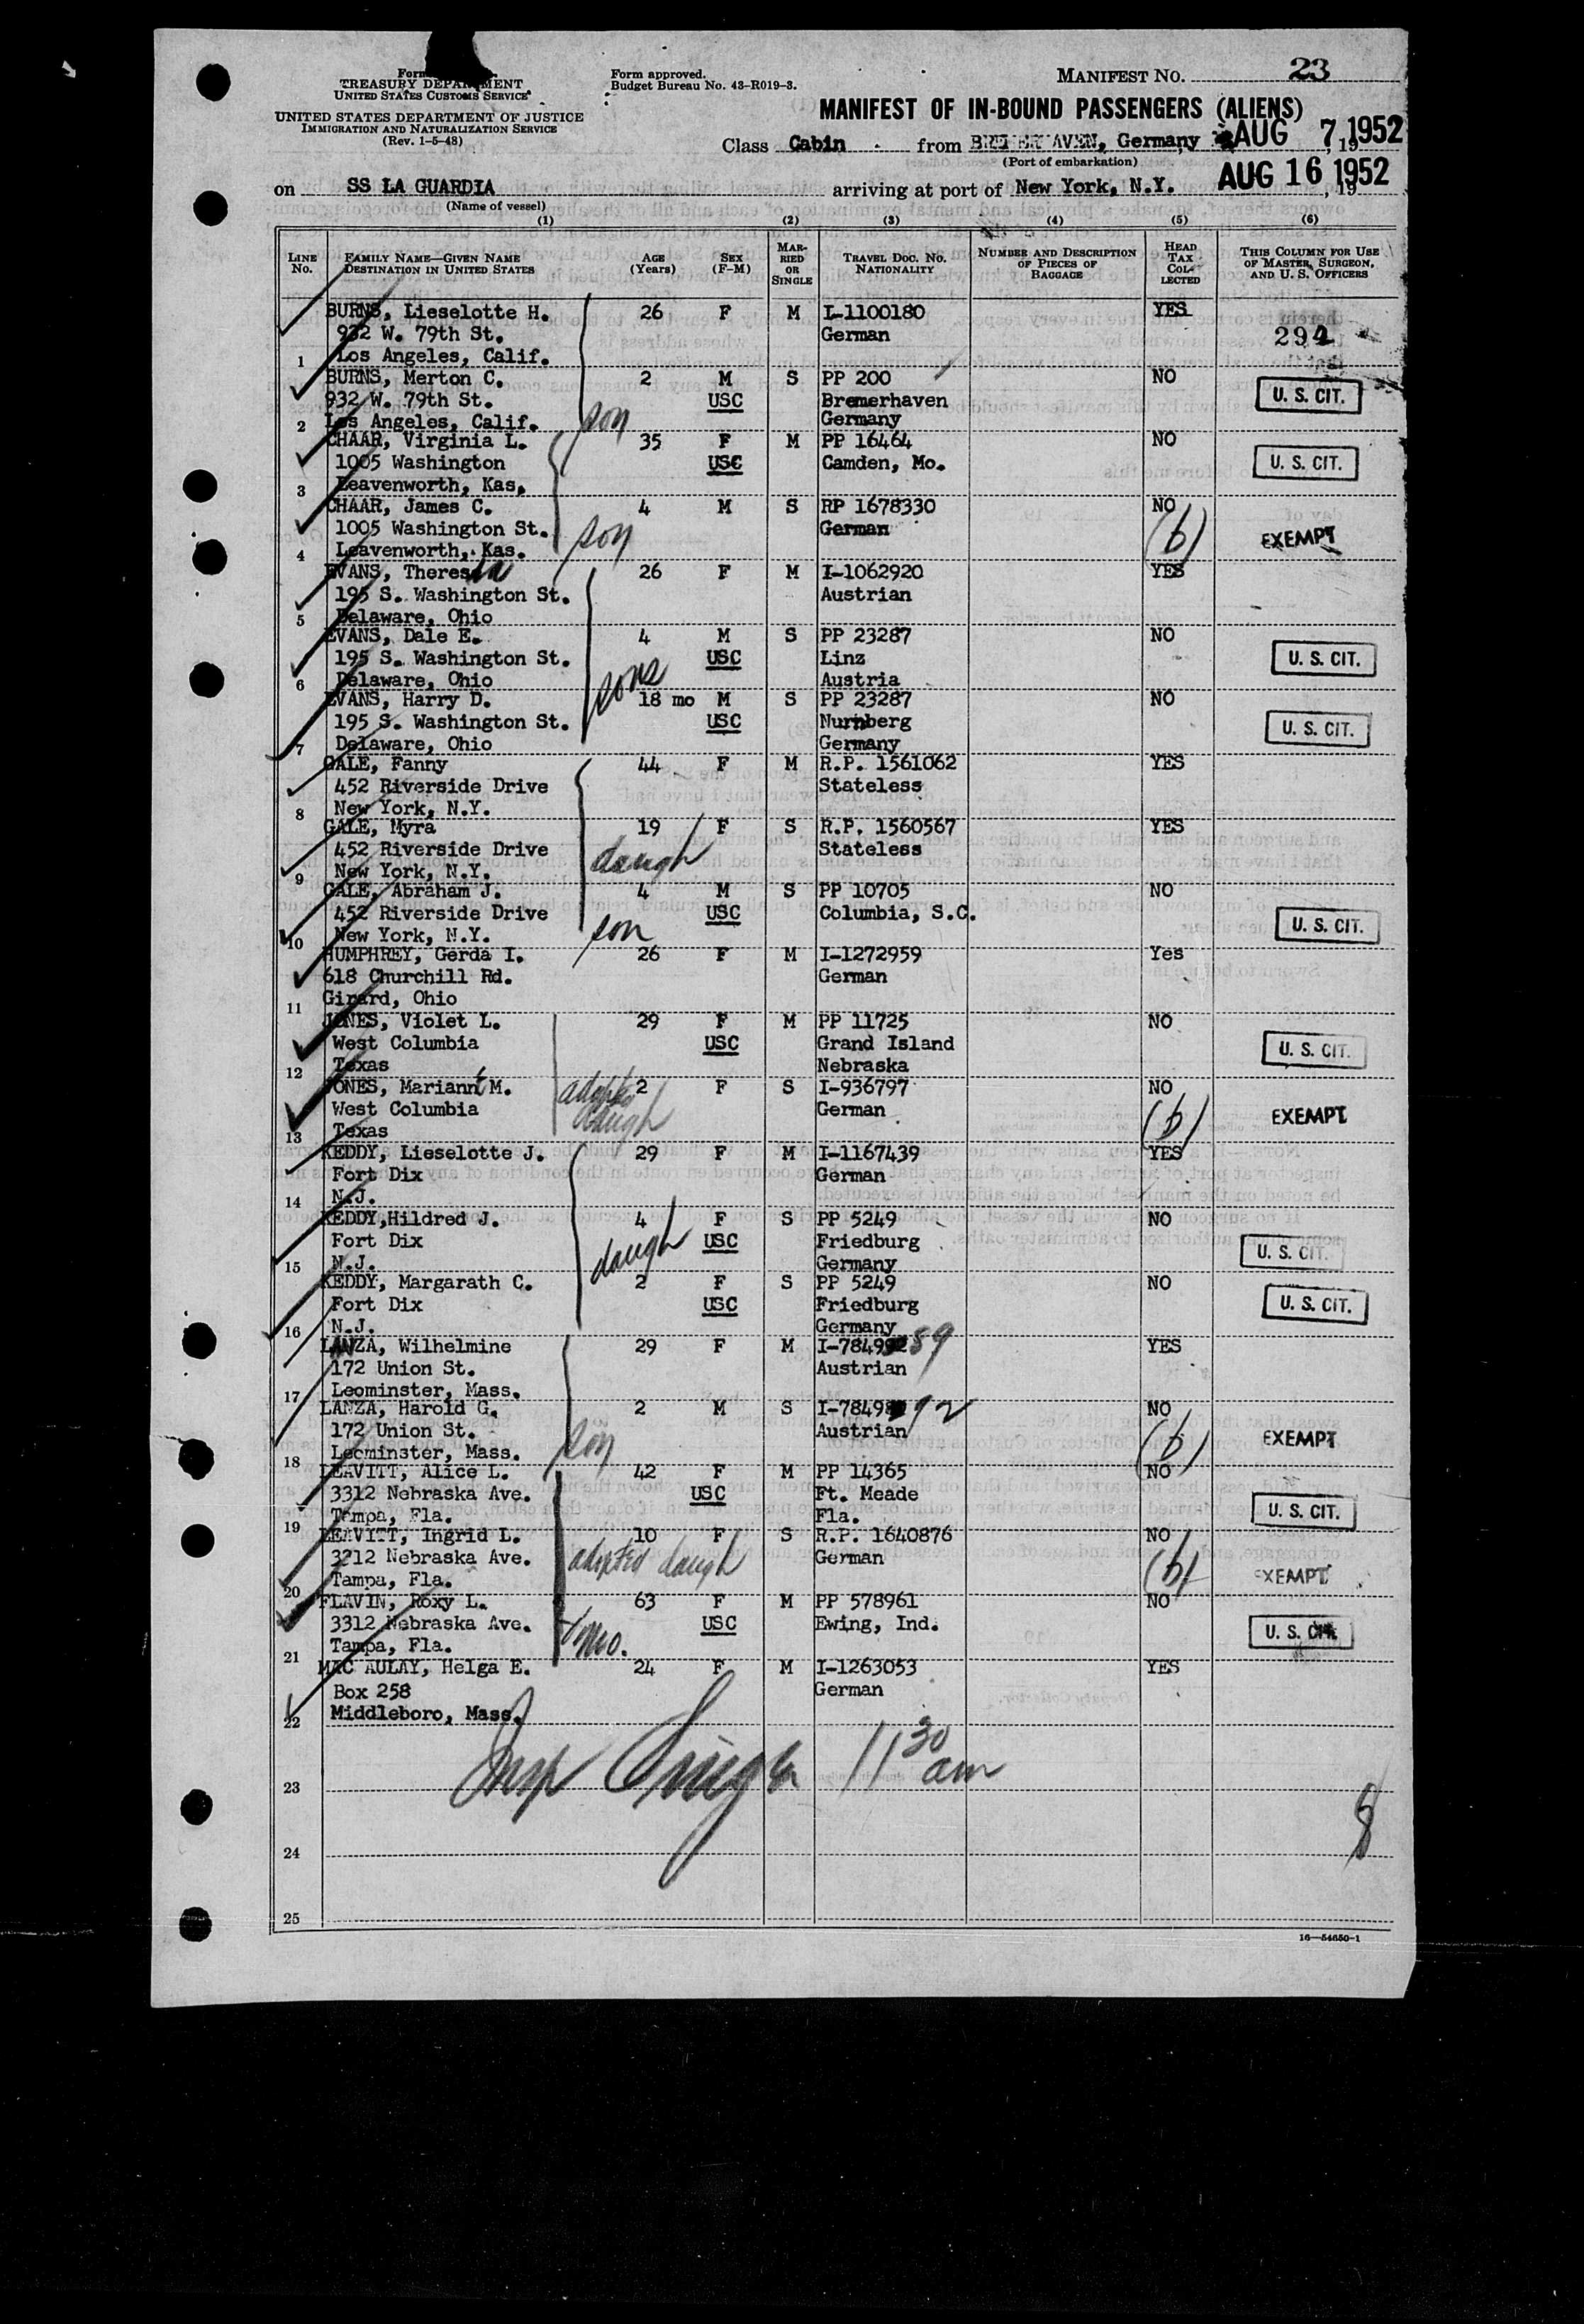 Form
TREASURY DEPARTMENT
UNITED STATES CUSTOMS SERVICE
UNITED STATES DEPARTMENT OF JUSTICE
IMMIGRATION AND NATURALIZATION SERVICE
(Rev. 1-5-48)
Form approved.
Budget Bureau No. 43-R019-3.
MANIFEST NO. 23
MANIFEST OF IN-BOUND PASSENGERS (ALIENS)
Class Cabin from BREMERHAVEN, Germany AUG 7 1952, 19
(Port of embarkation)
on SS LA GUARDIA arriving at port of New York, N.Y. AUG 16 1952, 19
(Name of vessel)
(1) (2) (3) (4) (5) (6)
LINE NO. FAMILY NAME—GIVEN NAME DESTINATION IN UNITED STATES AGE (YEARS) SEX (F-M) MARRIED OR SINGLE TRAVEL DOC. NO. NATIONALITY NUMBER AND DESCRIPTION OF PIECES OF BAGGAGE HEAD TAX COLLECTED THIS COLUMN FOR USE OF MASTER, SURGEON, AND U. S. OFFICERS
BURNS, Lieselotte H. 26 F M I-1100180 YES
932 W. 79th St. German 294
1 Los Angeles, Calif.
BURNS, Merton C. 2 M S PP 200 NO
932 W. 79th St. son USC Bremerhaven U. S. CIT.
2 Los Angeles, Calif. Germany
CHAAR, Virginia L. 35 F M PP 16464 NO
1005 Washington USC Camden, Mo. U. S. CIT.
3 Leavenworth, Kas.
CHAAR, James C. 4 M S RP 1678330 NO
1005 Washington St. son German (b) EXEMPT
4 Leavenworth, Kas.
EVANS, Theresia 26 F M I-1062920 YES
195 S. Washington St. Austrian
5 Delaware, Ohio
EVANS, Dale E. 4 M S PP 23287 NO
195 S. Washington St. USC Linz U. S. CIT.
6 Delaware, Ohio sons Austria
EVANS, Harry D. 18 mo M S PP 23287 NO
195 S. Washington St. USC Nurnberg U. S. CIT.
7 Delaware, Ohio Germany
GALE, Fanny 44 F M R.P. 1561062 YES
452 Riverside Drive Stateless
8 New York, N.Y.
GALE, Myra 19 F S R.P. 1560567 YES
452 Riverside Drive daugh Stateless
9 New York, N.Y.
GALE, Abraham J. 4 M S PP 10705 NO
452 Riverside Drive son USC Columbia, S.C. U. S. CIT.
10 New York, N.Y.
HUMPHREY, Gerda I. 26 F M I-1272959 Yes
618 Churchill Rd. German
11 Girard, Ohio
JONES, Violet L. 29 F M PP 11725 NO
West Columbia USC Grand Island U. S. CIT.
12 Texas Nebraska
JONES, Mariann M. adopted 2 F S I-936797 NO
West Columbia daugh German (b) EXEMPT
13 Texas
KEDDY, Lieselotte J. 29 F M I-1167439 YES
Fort Dix German
14 N.J.
KEDDY,Hildred J. 4 F S PP 5249 NO
Fort Dix daugh USC Friedburg U. S. CIT.
15 N.J. Germany
KEDDY, Margarath C. 2 F S PP 5249 NO
Fort Dix USC Friedburg U. S. CIT.
16 N.J. Germany
LANZA, Wilhelmine 29 F M I-7849 89 YES
172 Union St. Austrian
17 Leominster, Mass.
LANZA, Harold G. 2 M S I-7849 92 NO
172 Union St. son Austrian (b) EXEMPT
18 Leominster, Mass.
LEAVITT, Alice L. 42 F M PP 14365 NO
3312 Nebraska Ave. USC Ft. Meade U. S. CIT.
19 Tampa, Fla. Fla.
LEAVITT, Ingrid L. 10 F S R.P. 1640876 NO
3212 Nebraska Ave. adopted daugh German (b) EXEMPT
20 Tampa, Fla.
FLAVIN, Roxy L. 63 F M PP 578961 NO
3312 Nebraska Ave. mo. USC Ewing, Ind. U. S. CIT.
21 Tampa, Fla.
MAC AULAY, Helga E. 24 F M I-1263053 YES
Box 258 German
22 Middleboro, Mass.
Insp 11 30 am
23
24
25
16—54650-1